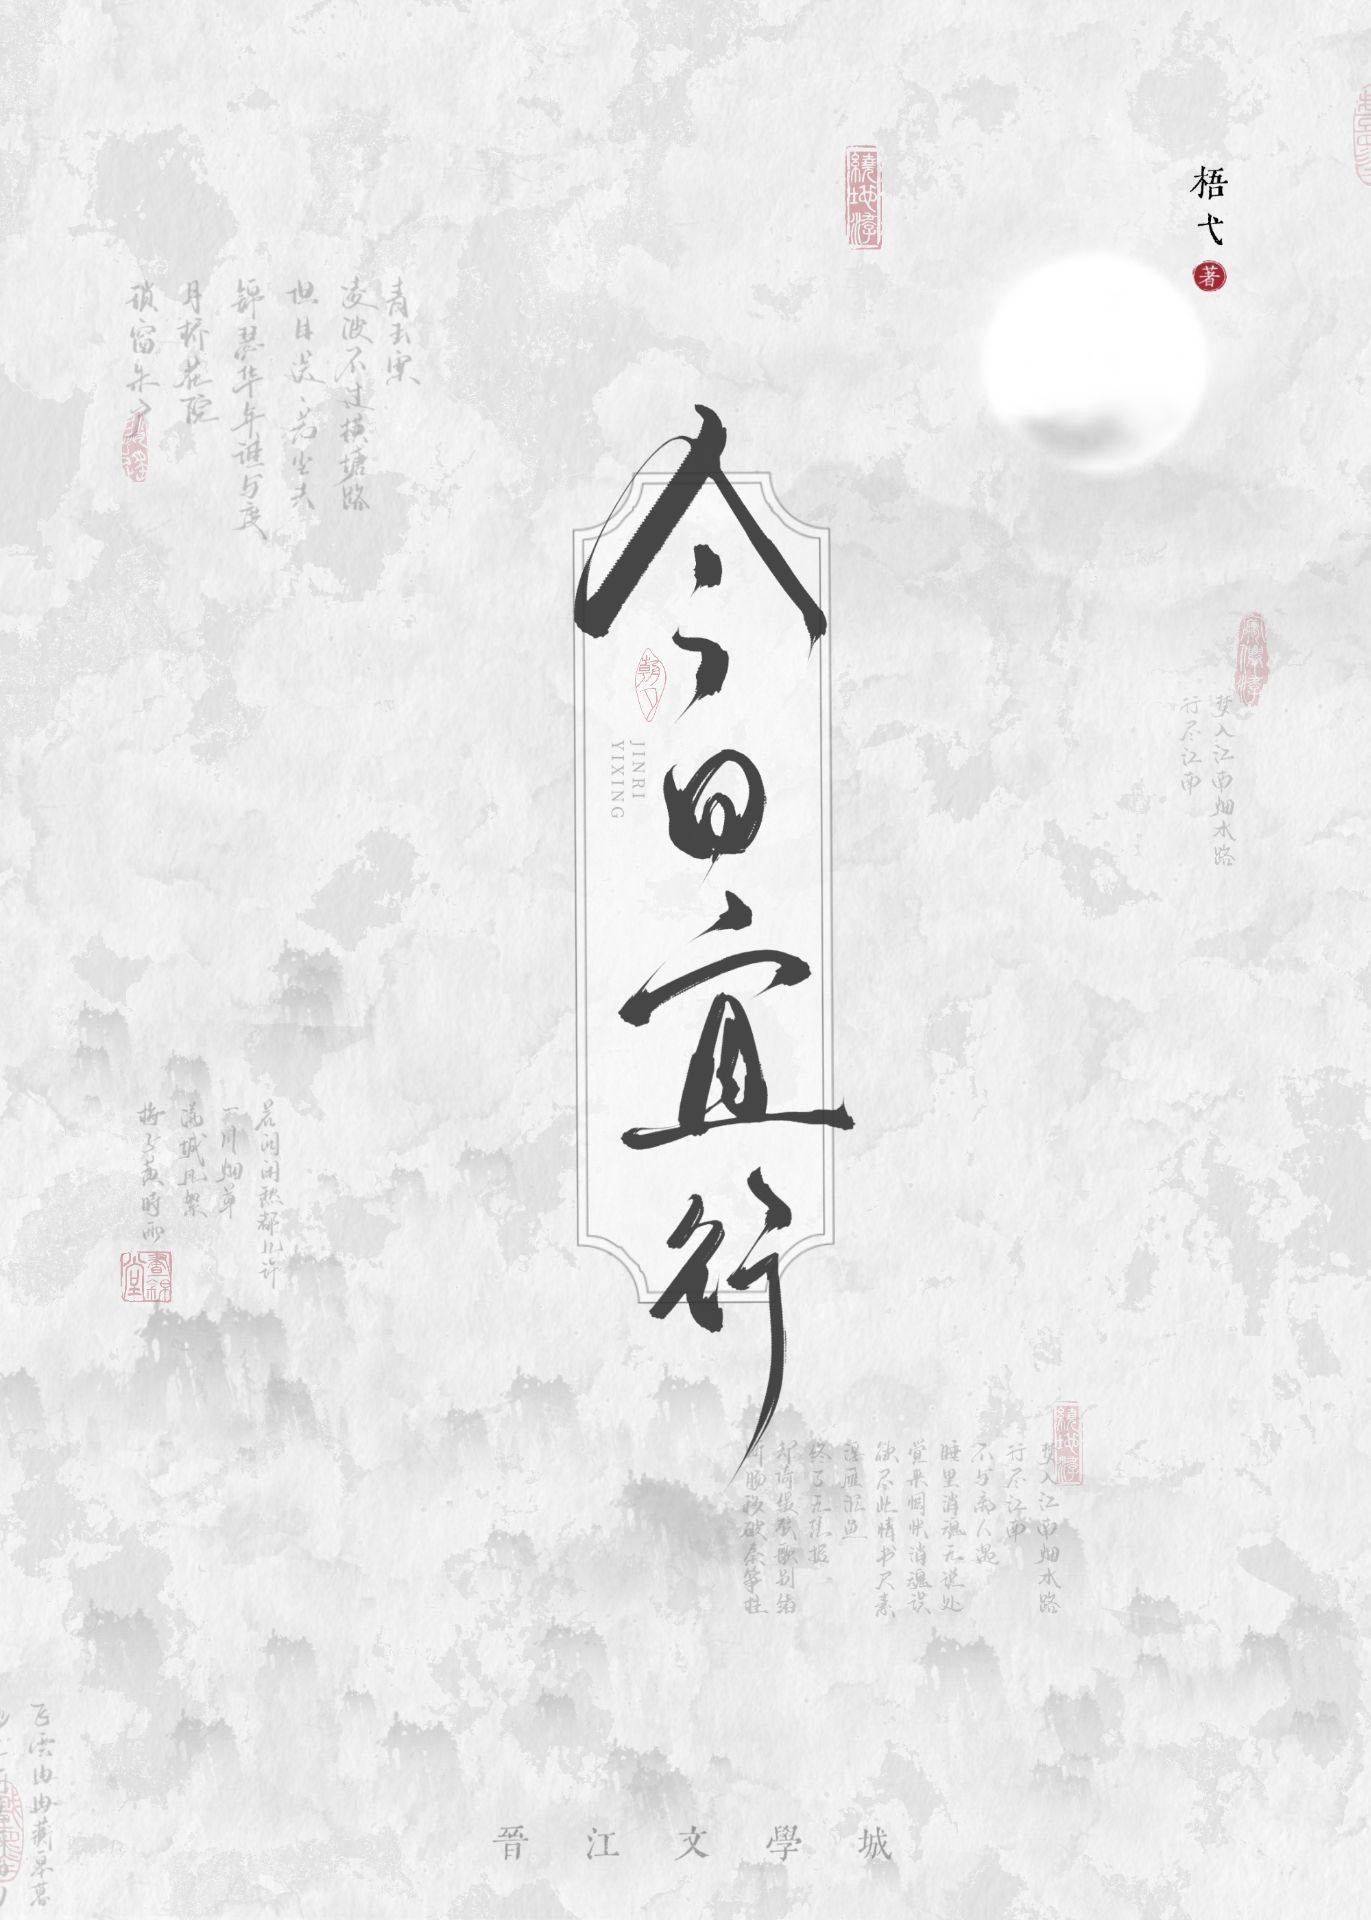 梧弋
著
绕地游
今日宜行
朝夕
JINRI
YIXING
青玉案
凌波不过横塘路
但目送
芳尘去
锦瑟华年谁与度
月桥花院
琐窗朱户
梦入江南烟水路
行尽江南
若问闲愁都几许
一川烟草
满城风絮
梅子黄时雨
書錦堂
绕地游
梦入江南烟水路
行尽江南
不与离人遇
睡里消魂无说处
觉来惆怅消魂误
欲尽此情书尺素
浮雁沉鱼
终了无凭据
却倚缓弦歌别绪
断肠移破秦筝柱
飞雲冉冉蘅皋暮
晉江文學城